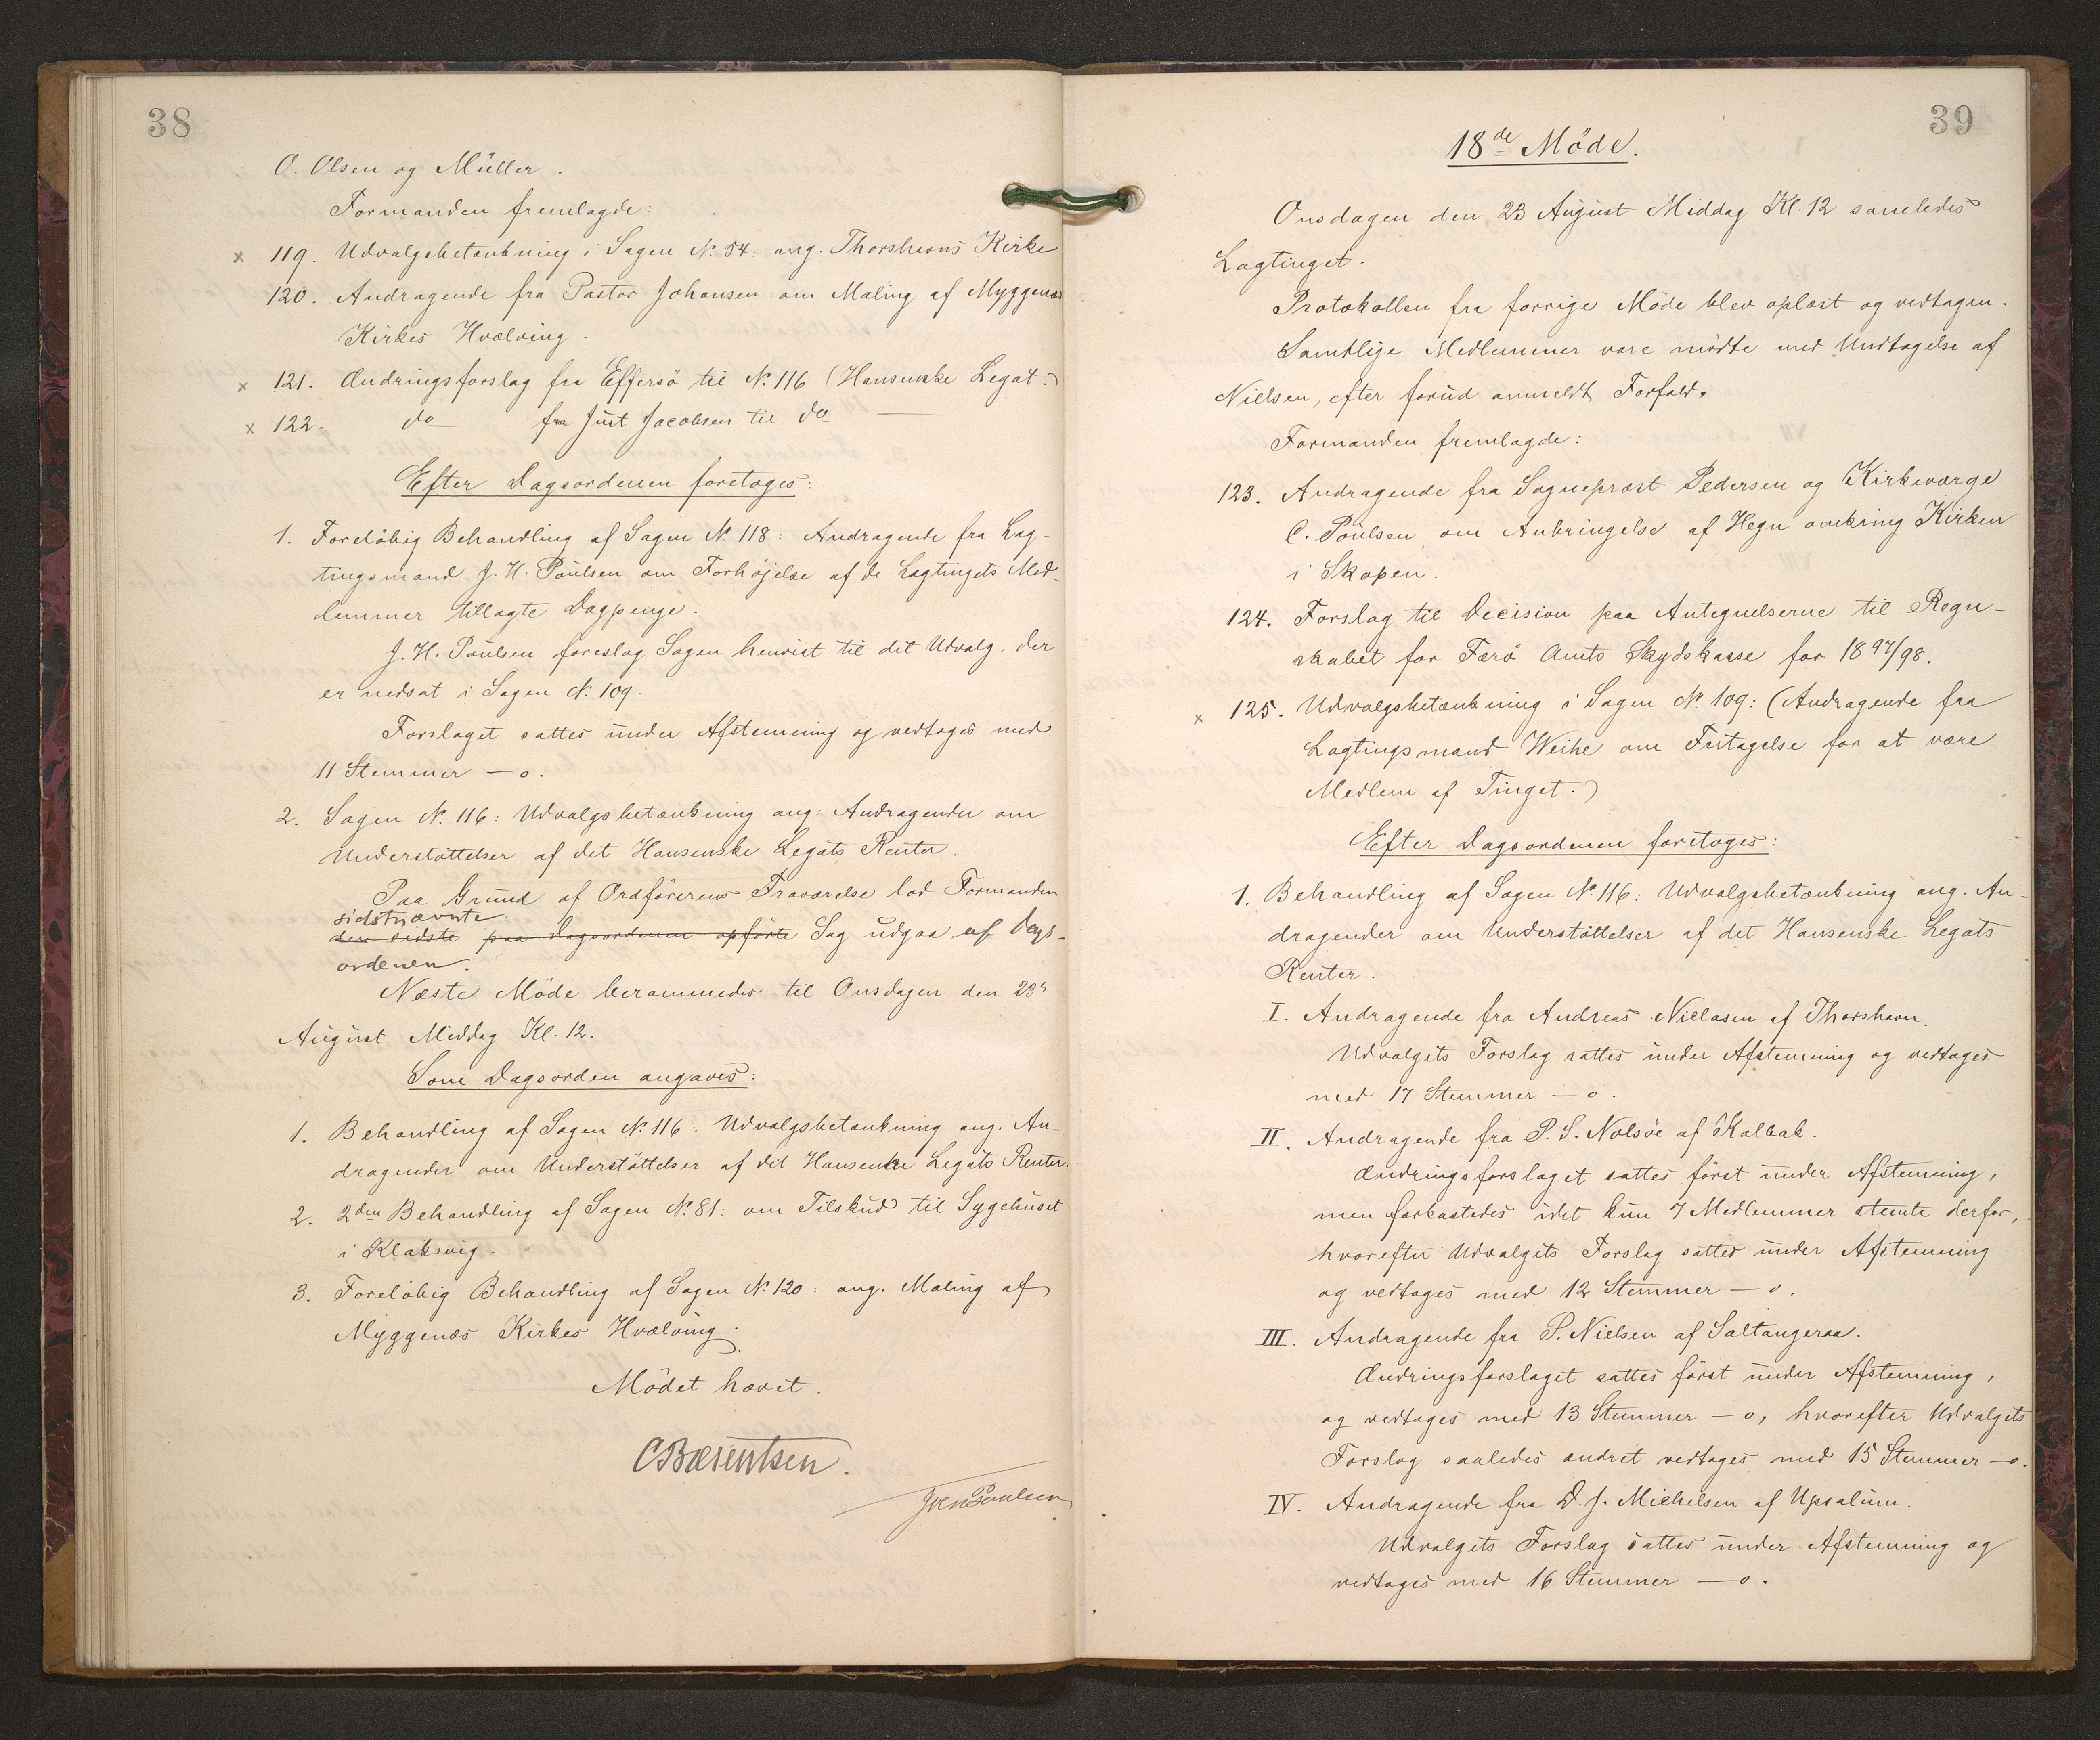 38
O. Olsen og Müller.
Formanden fremlagde:
x 119. Udvalgsbetænkning i Sagen No 54 ang. Thorshavns Kirke
120. Andragende fra Pastor Johansen om Maling af Myggenæs
Kirkes Hvælving.
x 121. Ændringsforslag fra Effersö til No 116 (Hansenske Legat.)
x 122. do fra Just Jacobsen til do —
Efter Dagsordenen foretoges:
1. Foreløbig Behandling af Sagen No 118: Andragende fra Lag-
tingsmand J. H. Poulsen om Forhøjelse af de Lagtingets Med-
lemmer tillagte Dagpenge.
J. H. Poulsen foreslog Sagen henvist til det Udvalg, der
er nedsat i Sagen No 109.
Forslaget sattes under Afstemning og vedtoges med
11 Stemmer — o.
2. Sagen No. 116: Udvalgsbetænkning ang: Andragender om
Understöttelser af det Hansenske Legats Renter.
Paa Grund af Ordförerens Fraværelse lod Formanden
sidstnævnte
den sidste paa Dagsordenen opförte Sag udgaa af Dags-
ordenen.
Næste Möde berammedes til Onsdagen den 23de
August Middag Kl. 12.
Som Dagsorden angaves:
1. Behandling af Sagen No 116: Udvalgsbetænkning ang. An-
dragender om Understöttelser af det Hansenske Legats Renter.
2. 2den Behandling af Sagen No. 81: om Tilskud til Sygehuset
i Klaksvig.
3. Forelöbig Behandling af Sagen No. 120: ang. Maling af
Myggenæs Kirkes Hvælving.
Mödet hævet.
CBærentsen.
Poulsen
39
18de Möde.
Onsdagen den 23 August Middag Kl. 12 samledes
Lagtinget.
Protokollen fra forrige Möde blev oplæst og vedtagen.
Samtlige Medlemmer vare mödte med Undtagelse af
Nielsen, efter forud anmeldt Forfald.
Formanden fremlagde:
123. Andragende fra Sognepræst Pedersen og Kirkeværge
C. Poulsen om Anbringelse af Hegn omkring Kirken
i Skopen.
124. Forslag til Decision paa Antegnelserne til Regn-
skabet for Færö Amts Skydskasse for 1897/98.
x 125. Udvalgsbetænkning i Sagen No 109: (Andragende fra
Lagtingsmand Weihe om Fritagelse for at være
Medlem af Tinget.)
Efter Dagsordenen foretoges:
1. Behandling af Sagen No. 116: Udvalgsbetænkning ang. An-
dragender om Understöttelser af det Hansenske Legats
Renter.
I. Andragende fra Andreas Niclasen af Thorshavn.
Udvalgets Forslag sattes under Afstemning og vedtoges
med 17 Stemmer — o.
II. Andragende fra P. S. Nolsöe af Kalbak.
Ændringsforslaget sattes först under Afstemning,
men forkastedes idet kun 7 Medlemmer stemte derfor,
hvorefter Udvalgets Forslag sattes under Afstemning
og vedtoges med 12 Stemmer — o.
III. Andragende fra P. Nielsen af Saltangeraa.
Ændringsforslaget sattes först under Afstemning,
og vedtoges med 13 Stemmer — o, hvorefter Udvalgets
Forslag saaledes ændret vedtoges med 15 Stemmer — o.
IV. Andragende fra D. J. Michelsen af Upsalum.
Udvalgets Forslag sattes under Afstemning og
vedtoges med 16 Stemmer — o.